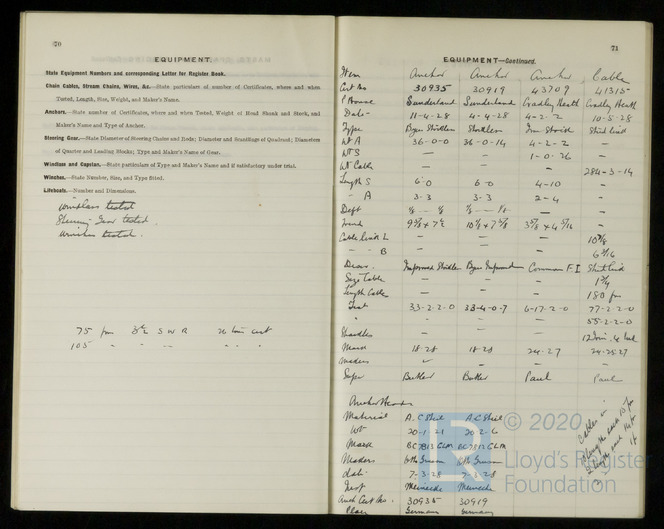 70
EQUIPMENT.
State Equipment Numbers and corresponding Letter for Register Book.
Chain Cables, Stream Chains, Wires, &c.—State particulars of number of Certificates, where and when
Tested, Length, Size, Weight, and Maker's Name.
Anchors.—State number of Certificates, where and when Tested, Weight of Head Shank and Stock, and
Maker's Name and Type of Anchor.
Steering Gear.—State Diameter of Steering Chains and Rods; Diameter and Scantlings of Quadrant; Diameters
of Quarter and Leading Blocks; Type and Maker's Name of Gear.
Windlass and Capstan.—State particulars of Type and Maker's Name and if satisfactory under trial.
Winches.—State Number, Size, and Type fitted.
Lifeboats.—Number and Dimensions.
Windlass tested
Steering Gear tested
Winches tested.
75 fm S W R
105 " " "
71
EQUIPMENT—Continued.
Item Anchor Anchor Anchor Cable
Cert No 30935 30919 43709 41315
P. House Sunderland Sunderland Cradley Heath Cradley Heath
Date 11-4-28 4-4-28 4-2-2 10-5-28
Type Byers Stockless Stockless Iron Stock Stud link
Wt A 36-0-0 36-0-14 4-2-2 -
Wt S - - 1-0-26 -
Wt Cable - - - 284-3-14
Length S 6-0 6-0 4-10
A 3-3 3-3 2-4 -
Dept - -
Trend -
Cable Link L - - -
" B - - -
Descr. Improved Stockless Byers Improved Common F.I Stud link
Size Cable - - - 1 3/4
Length Cable - - - 180 fm
Test 33-2-2-0 33-4-0-7 6-17-2-0 77-2-2-0
" 55-2-2-0
Shackles - - -
Mark 18-28 18-28 24-27 24-25-27
Makers - -
Super Butler Butler Paul Paul
Anchor Heads
Material A.C Steel A.C Steel
Wt 20-1-21 20-2-6
Mark BC7813 GLM BC7812 GLM
Makers
Date 7-3-28 7-3-28
Test Meinecke Meinecke
Anch Cert No. 30935 30919
Place Germany Germany
© 2020
Lloyd's Register
Foundation